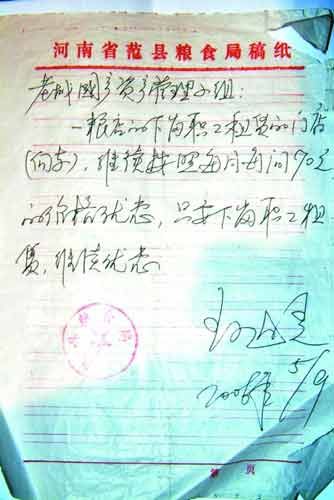 河南省范县粮食局稿纸
老城国有资产管理小组:
一粮店的下岗职工租赁的门店
(向李),继续按照每月每间70元
的价格优惠,只要下岗职工租
赁,继续优惠。
5/9
第 页